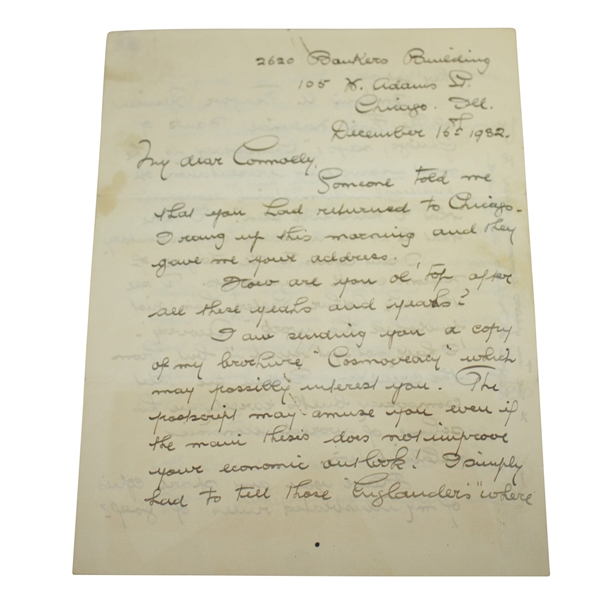 2620 Bankers Building
105 W. Adams St.
Chicago. Ill.
December 16th 1932.
My dear Connolly,
Someone told me
that you had returned to Chicago.
I rang up this morning and they
gave me your address.
How are you ol' top after
all these yeahs and yeahs?
I am sending you a copy
of my brochure "Cosmocracy" which
may possibly interest you. The
postscript may amuse you even if
the main thesis does not improve
your economic outlook! I simply
had to tell those Englanders "where